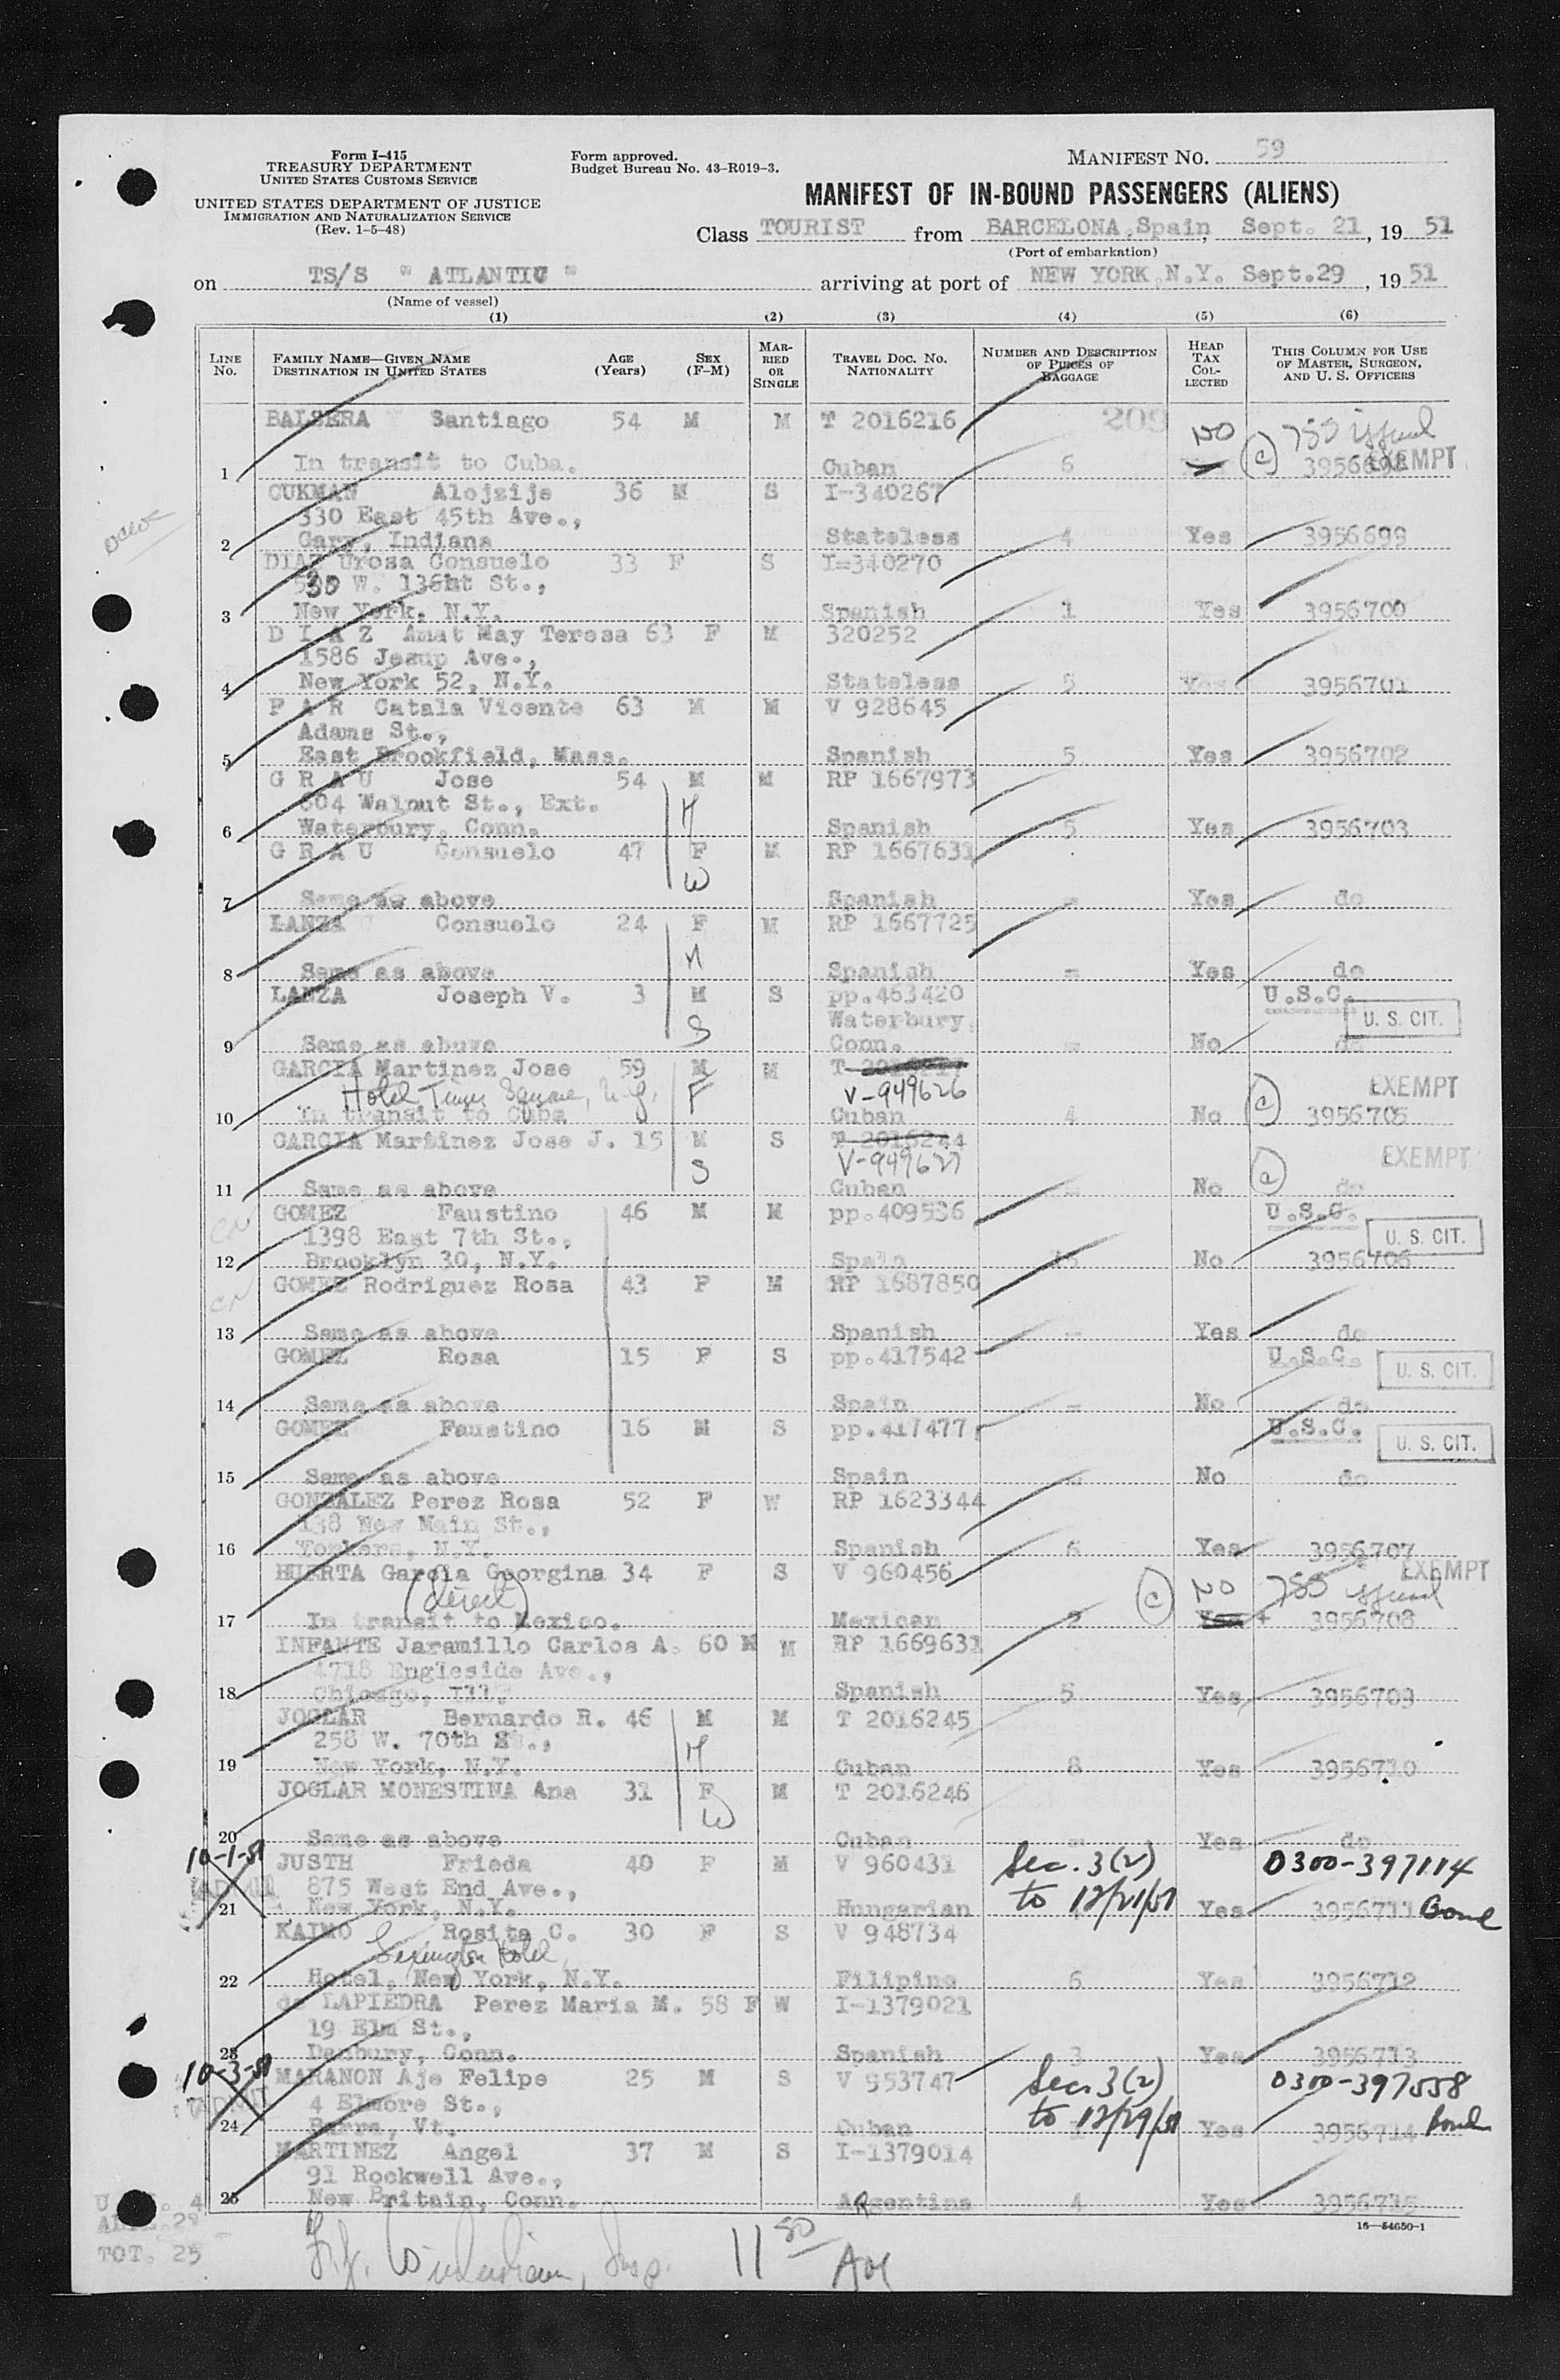 Form I-415
TREASURY DEPARTMENT
UNITED STATES CUSTOMS SERVICE
UNITED STATES DEPARTMENT OF JUSTICE
IMMIGRATION AND NATURALIZATION SERVICE
(Rev. 1-5-48)
Form approved.
Budget Bureau No. 43-R019-3.
MANIFEST NO. 59
MANIFEST OF IN-BOUND PASSENGERS (ALIENS)
Class TOURIST from BARCELONA, Spain, Sept. 21, 19 51
(Port of embarkation)
on TS/S " ATLANTIC " arriving at port of NEW YORK, N.Y. Sept. 29, 19 51
(Name of vessel)
(1) (2) (3) (4) (5) (6)
LINE No. FAMILY NAME—GIVEN NAME DESTINATION IN UNITED STATES AGE (Years) SEX (F-M) MARRIED OR SINGLE TRAVEL DOC. NO. NATIONALITY NUMBER AND DESCRIPTION OF PIECES OF BAGGAGE HEAD TAX COLLECTED THIS COLUMN FOR USE OF MASTER, SURGEON, AND U. S. OFFICERS
BALSERA Santiago 54 M M T 2016216 209 NO (c) 755 issued
1 In transit to Cuba. Cuban 6 EXEMPT
CUKMAN Alojzije 36 M S I-340267
330 East 45th Ave.,
2 Gary, Indiana Stateless 4 Yes 3956699
DIAZ Urosa Consuelo 33 F S I=340270
W. 136ht St.,
3 New York, N.Y. Spanish 1 Yes 3956700
D I A Z Amat May Teresa 63 F M 320252
1586 Jesup Ave.,
4 New York 52, N.Y. Stateless 5 Yes 3956701
F A R Catala Vicente 63 M M V 928645
Adams St.,
5 East Brookfield, Mass. Spanish 5 Yes 3956702
G R A U Jose 54 M M RP 1667973
604 Walnut St., Ext. H
6 Waterbury, Conn. Spanish 5 Yes 3956703
G R A U Consuelo 47 F M RP 1667631
W
7 Same as above Spanish - Yes do
LANZA Consuelo 24 F M RP 1667725
M
8 Same as above Spanish - Yes do
LANZA Joseph V. 3 M S pp.463420 U.S.C.
S Waterbury, U. S. CIT.
9 Same as above Conn. - No do
GARCIA Martinez Jose 59 M M T EXEMPT
Hotel Times Square, N.Y. F V-949626
10 In transit to Cuba Cuban 4 No (c) 3956705
GARCIA Martinez Jose J. 15 M S T 2016244 EXEMPT
S V-949627
11 Same as above Cuban - No (c) do
GOMEZ Faustino 46 M M pp.409536 U.S.C.
1398 East 7th St., U. S. CIT.
12 Brooklyn 30, N.Y. Spain No 3956706
GOMEZ Rodriguez Rosa 43 F M RP 1687850
13 Same as above Spanish - Yes do
GOMEZ Rosa 15 F S pp.417542 U.S.C.
U. S. CIT.
14 Same as above Spain - No do
GOMEZ Faustino 16 M S pp.417477 U.S.C.
U. S. CIT.
15 Same as above Spain - No do
GONZALEZ Perez Rosa 52 F W RP 1623344
138 New Main St.,
16 Yonkers, N.Y. Spanish 6 Yes 3956707
HUERTA Garcia Georgina 34 F S V 960456 EXEMPT
(direct) (c) NO 755 issued
17 In transit to Mexico. Mexican 2 Yes + 3956708
INFANTE Jaramillo Carlos A. 60 M M RP 1669631
4718 Engleside Ave.,
18 Chicago, Ill. Spanish 5 Yes 3956709
JOGLAR Bernardo R. 46 M M T 2016245
258 W. 70th St., H
19 New York, N.Y. Cuban 8 Yes 3956710
JOGLAR MONESTINA Ana 31 F M T 2016246
W
20 Same as above Cuban - Yes do
10-1-51 JUSTH Frieda 40 F M V 960431 Sec. 3(2) 0300-397114
875 West End Ave., to 12/21/51
21 New York, N.Y. Hungarian Yes 3956711 Bond
KAIMO Rosita C. 30 F S V 948734
Lexington Hotel,
22 Hotel, New York, N.Y. Filipino 6 Yes 3956712
de LAPIEDRA Perez Maria M. 58 F W I-1379021
19 Elm St.,
23 Danbury, Conn. Spanish 3 Yes 3956713
10-3-51 MARANON Aje Felipe 25 M S V 953747 Sec. 3(2) 0300-397558
4 Elmore St., to 12/29/51
24 Barre, Vt. Cuban Yes 3956714 Bond
MARTINEZ Angel 37 M S I-1379014
91 Rockwell Ave.,
25 New Britain, Conn. Argentina 4 Yes 3956715
16—54650-1
TOT. 25
11 50 AM